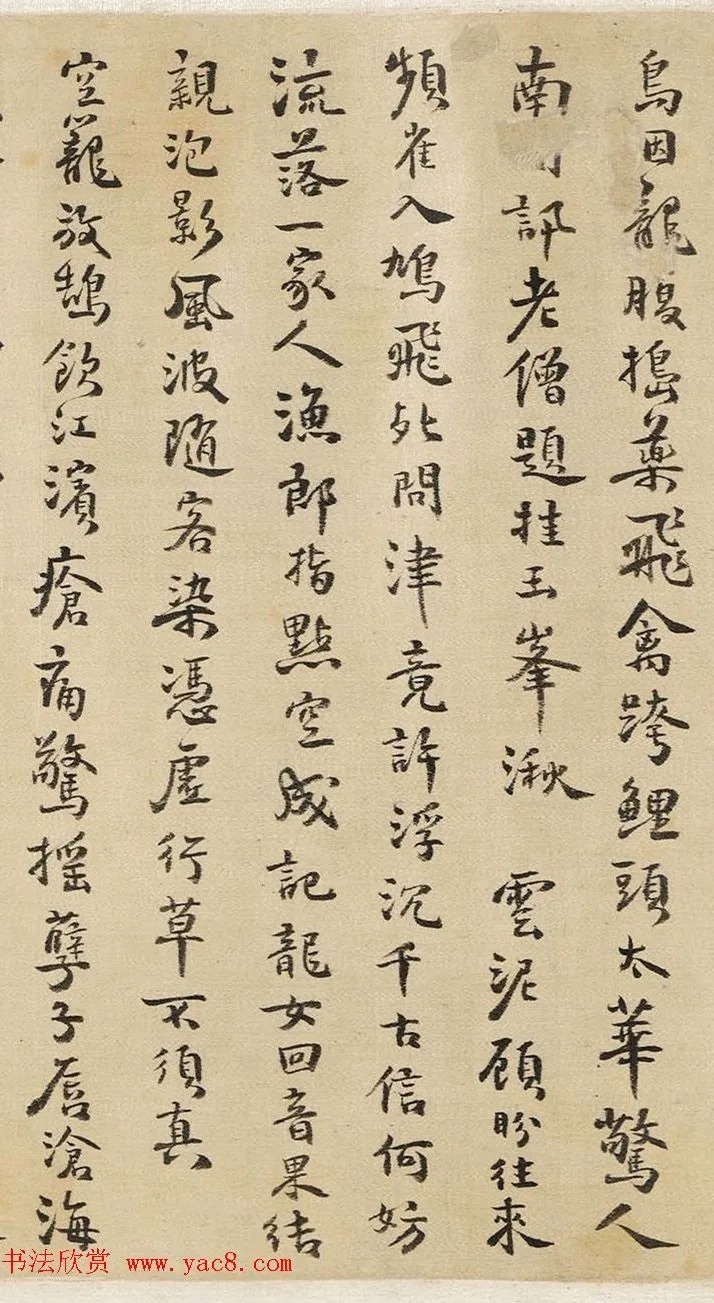 鳥因龍腹搗藥飛禽跨鯉頭太華驚人
南訊老僧題挂玉峯湫　雲泥顧盼往來
頻雀入鳩飛此問津竟許浮沉千古信何妨
流落一家人漁郎指點空成記龍女回音果結
親泡影風波隨客染憑虛行草不須真
空籠放鵠飲江濱瘡痛驚搖孽子唇滄海
书法欣赏 www.yac8.com